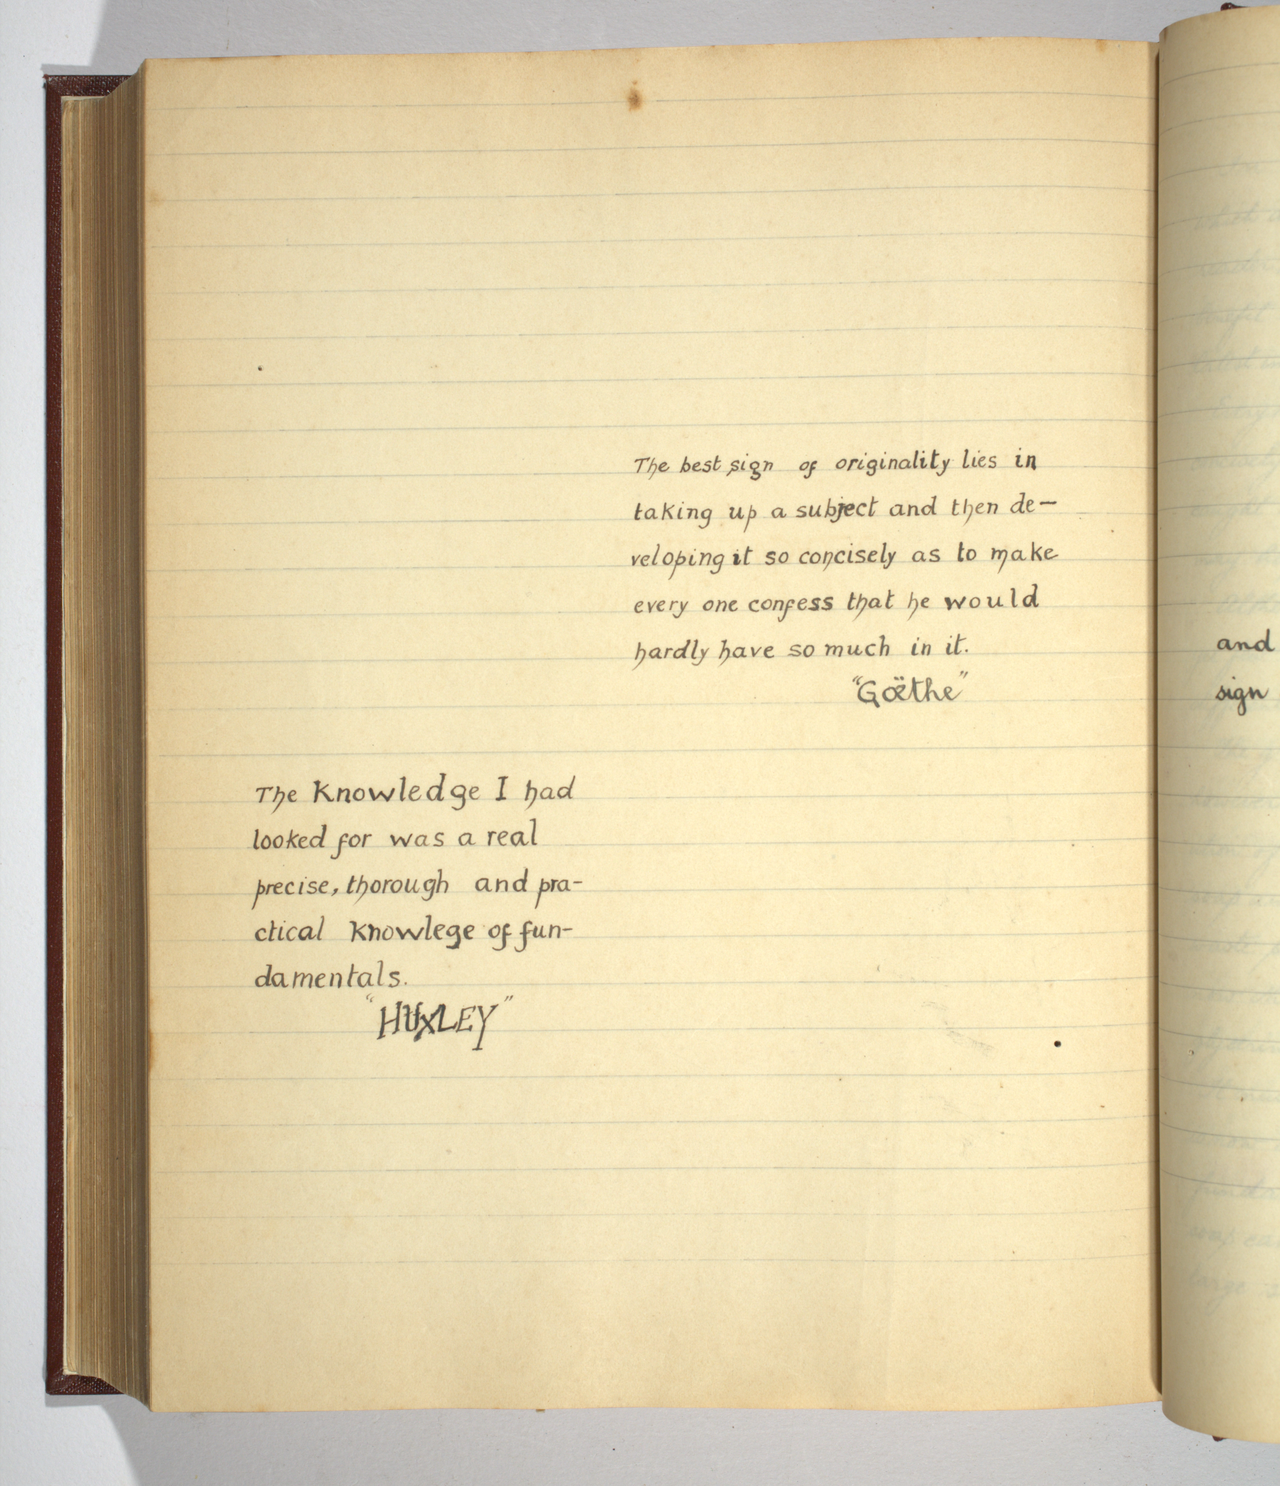 The best sign of originality lies in
taking up a subject and then de-
veloping it so concisely as to make
every one confess that he would
hardly have so much in it.
"Gœ̈the"
The Knowledge I had
looked for was a real
precise, thorough and pra-
ctical Knowlege of fun-
damentals.
"HUXLEY"
and
sign